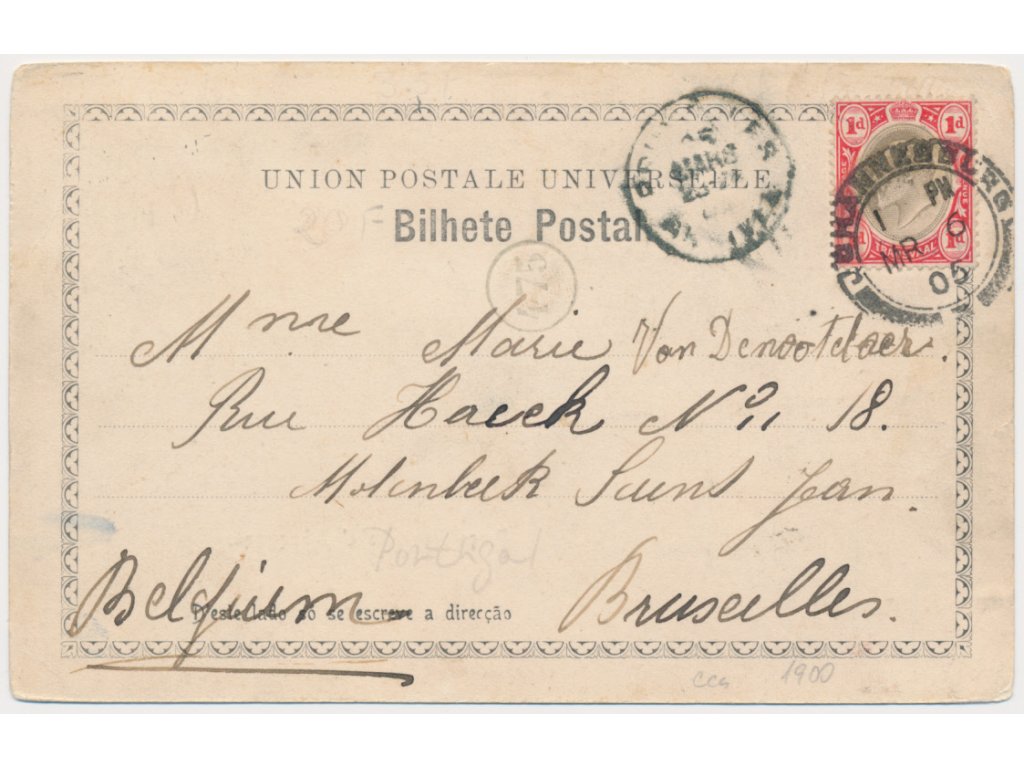 1d 1d
TRANSVAAL
1d
JOHANNESBURG
1 PM
MR 6
05
BRUXELLES
MARS
UNION POSTALE UNIVERSELLE
Bilhete Postal
175
Mme Marie Van Denootelaer.
Rue Haeck No 18.
Molenbeek Saint Jean
Portugal
Belgium Bruxelles.
D'este lado só se escreve a direcção
ccs 1900